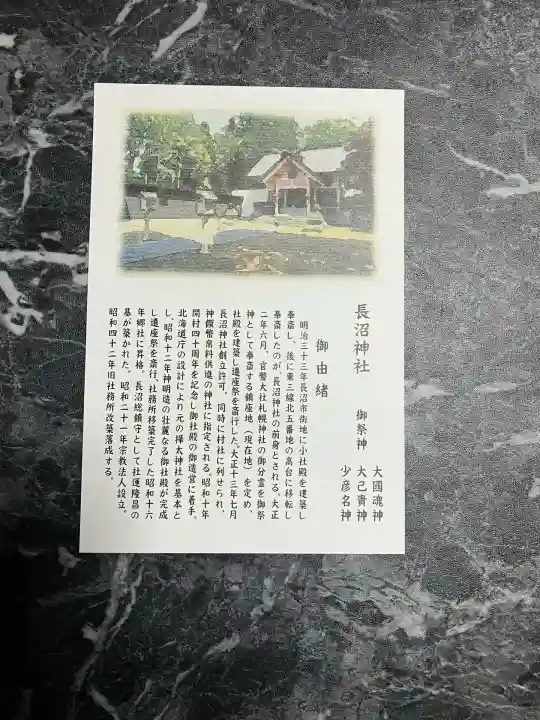 長沼神社
御祭神
大國魂神
大己貴神
少彦名神
御由緒
明治三十三年長沼市街地に小社殿を建築し
奉斎し、後に東三線北五番地の高台に移転し
奉斎したのが、長沼神社の前身とされる。大正
二年六月、官幣大社札幌神社の御分霊を御祭
神として奉斎する鎮座地（現在地）を定め、
社殿を建築し遷座祭を斎行した。大正十三年七月
長沼神社創立許可、同時に村社に列せられ、
神饌幣帛料供進の神社に指定される。昭和十年
開村四十周年を記念し御社殿の御造営に着手。
北海道庁の設計により元の樺太神社を基本と
し、昭和十二年神明造の壮麗なる御社殿が完成
し遷座祭を斎行。社務所移築完了した昭和十六
年郷社に昇格。長沼総鎮守として社運隆昌の
基が築かれた。昭和二十一年宗教法人設立。
昭和四十二年旧社務所改築落成する。